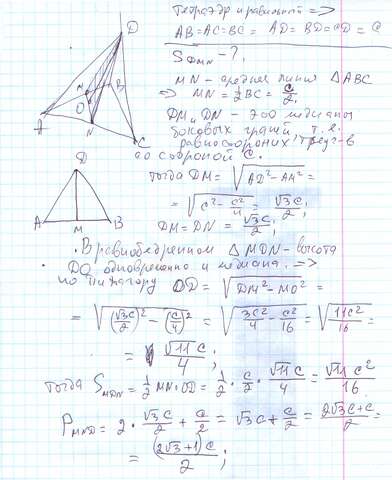 Тетраэдр правильный ⇒
AB=AC=BC= AD=BD=CD= C
S_DMN - ?,
MN - средняя линия △ABC
⇒ MN = 1/2 BC = c/2,
DM и DN - это медианы
боковых граней т.е.
равносторонних треуг-в
со стороной C.
тогда DM = √(AD²-AM²) =
= √(c² - c²/4) = √3c/2;
DM = DN = √3c/2;
В равнобедренном △MDN - высота
DO одновременно и медиана. ⇒
по пифагору OD = √(DM²-MO²) =
= √((√3c/2)² - (c/4)²) = √(3c²/4 - c²/16) = √(11c²/16) =
= √11 c/4;
тогда S_MDN = 1/2 MN·OD = 1/2 · c/2 · √11 c/4 = √11 c²/16.
P_MND = 2 · √3c/2 + c/2 = √3c + c/2 = 2√3c+c/2 =
= (2√3+1)c/2;
D
M
B
O
A
N
C
D
A
M
B